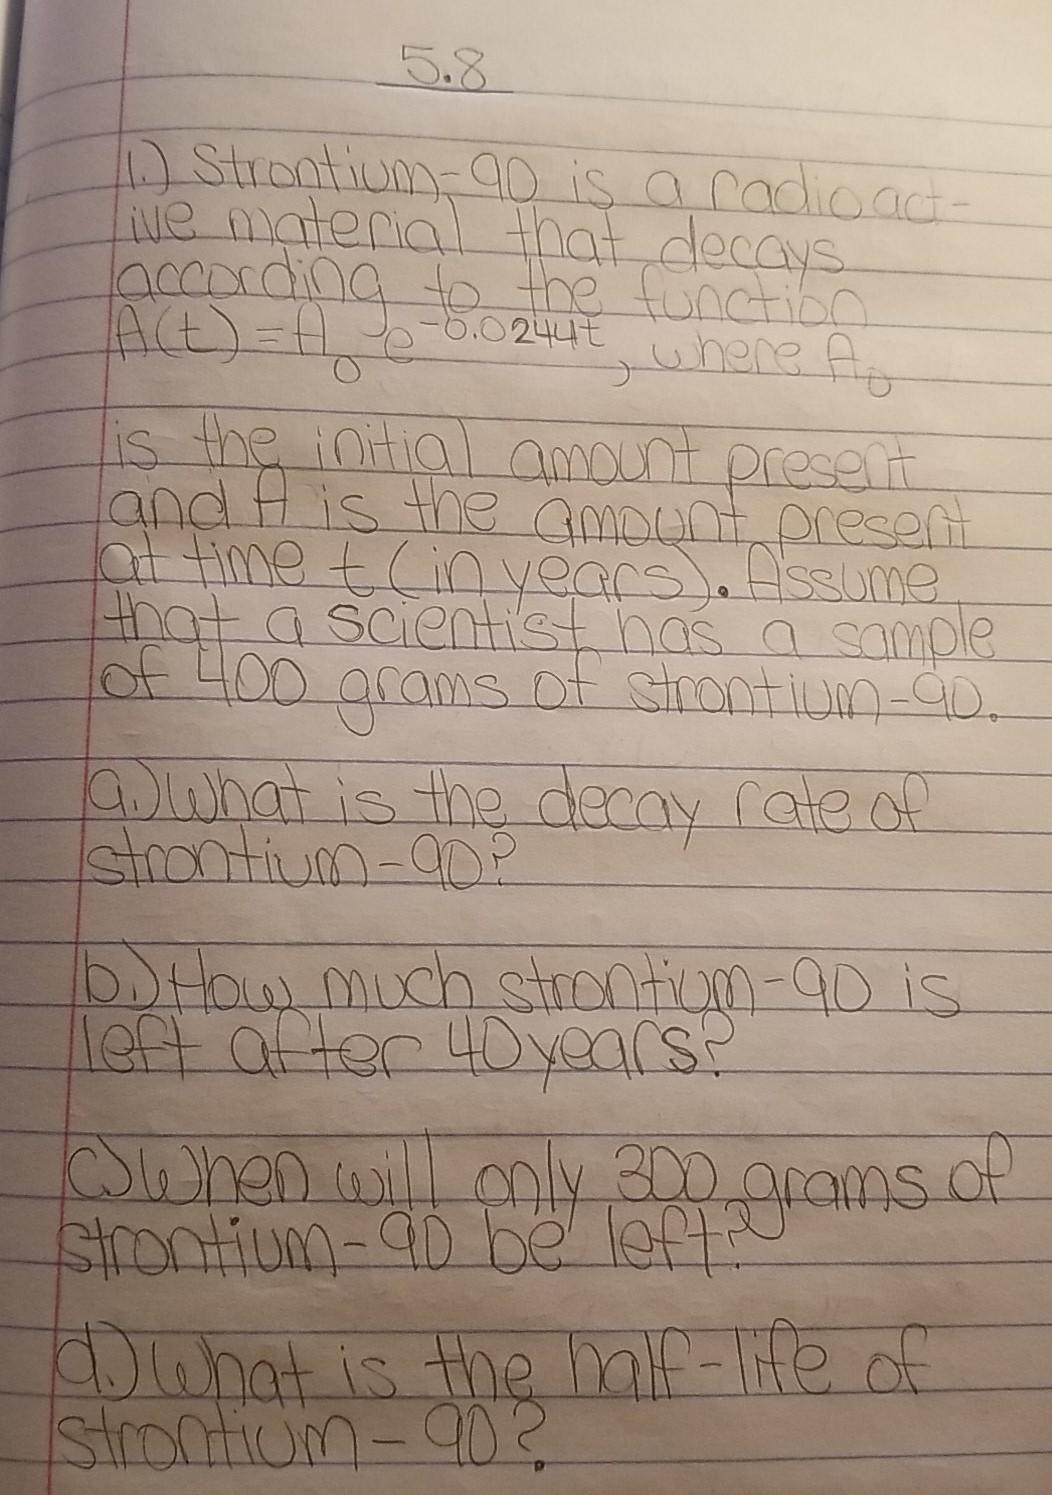 5.8
1.) Strontium-90 is a radioact-
ive material that decays
according to the function
A(t) = A₀ e^-0.0244t, where A₀
is the initial amount present
and A is the amount present
at time t (in years). Assume
that a scientist has a sample
of 400 grams of strontium-90.
a.) What is the decay rate of
strontium-90?
b.) How much strontium-90 is
left after 40 years?
c.) When will only 300 grams of
strontium-90 be left?
d.) What is the half-life of
strontium-90?